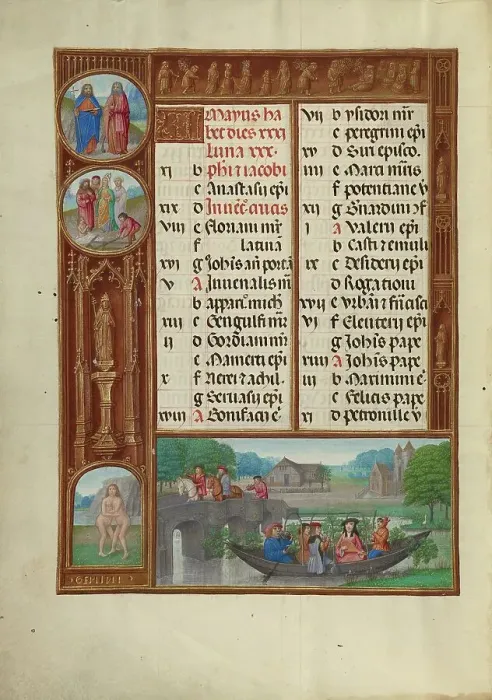 KL Mayus ha
bet dies xxxi
Luna xxx.
phi ⁊ iacobi
xi b
c Anastasii epi
xix d Inuēc crucis
viii e Floriani mr̄
f latina
xvi g Iohis an̄ porta
v A Iuuenalis m̄
b apparic̄ mich
xiii c Gengulfi mr̄
ii d Gordiani mr̄
e Mamerti epi
x f Nerei ⁊ achil.
g Seruasii epi
xviii A Bonifacii e.
vii b ysidori mr̄
c peregrini epi
xv d Siri episco.
iiii e Marci mr̄is
f potentiane v̄
xii g Bnardini ɔf
i A Valerii epi
b Casti ⁊ emuli
ix c Desiderii epi
d Rogationi
xvii e Vrbani ⁊ fricisci
vi f Eleuterii epi
g Iohis pape
xiiii A Iohis pape
iii b Maximini e.
c Felicis pape
xi d Petronille v̄
GEMINI